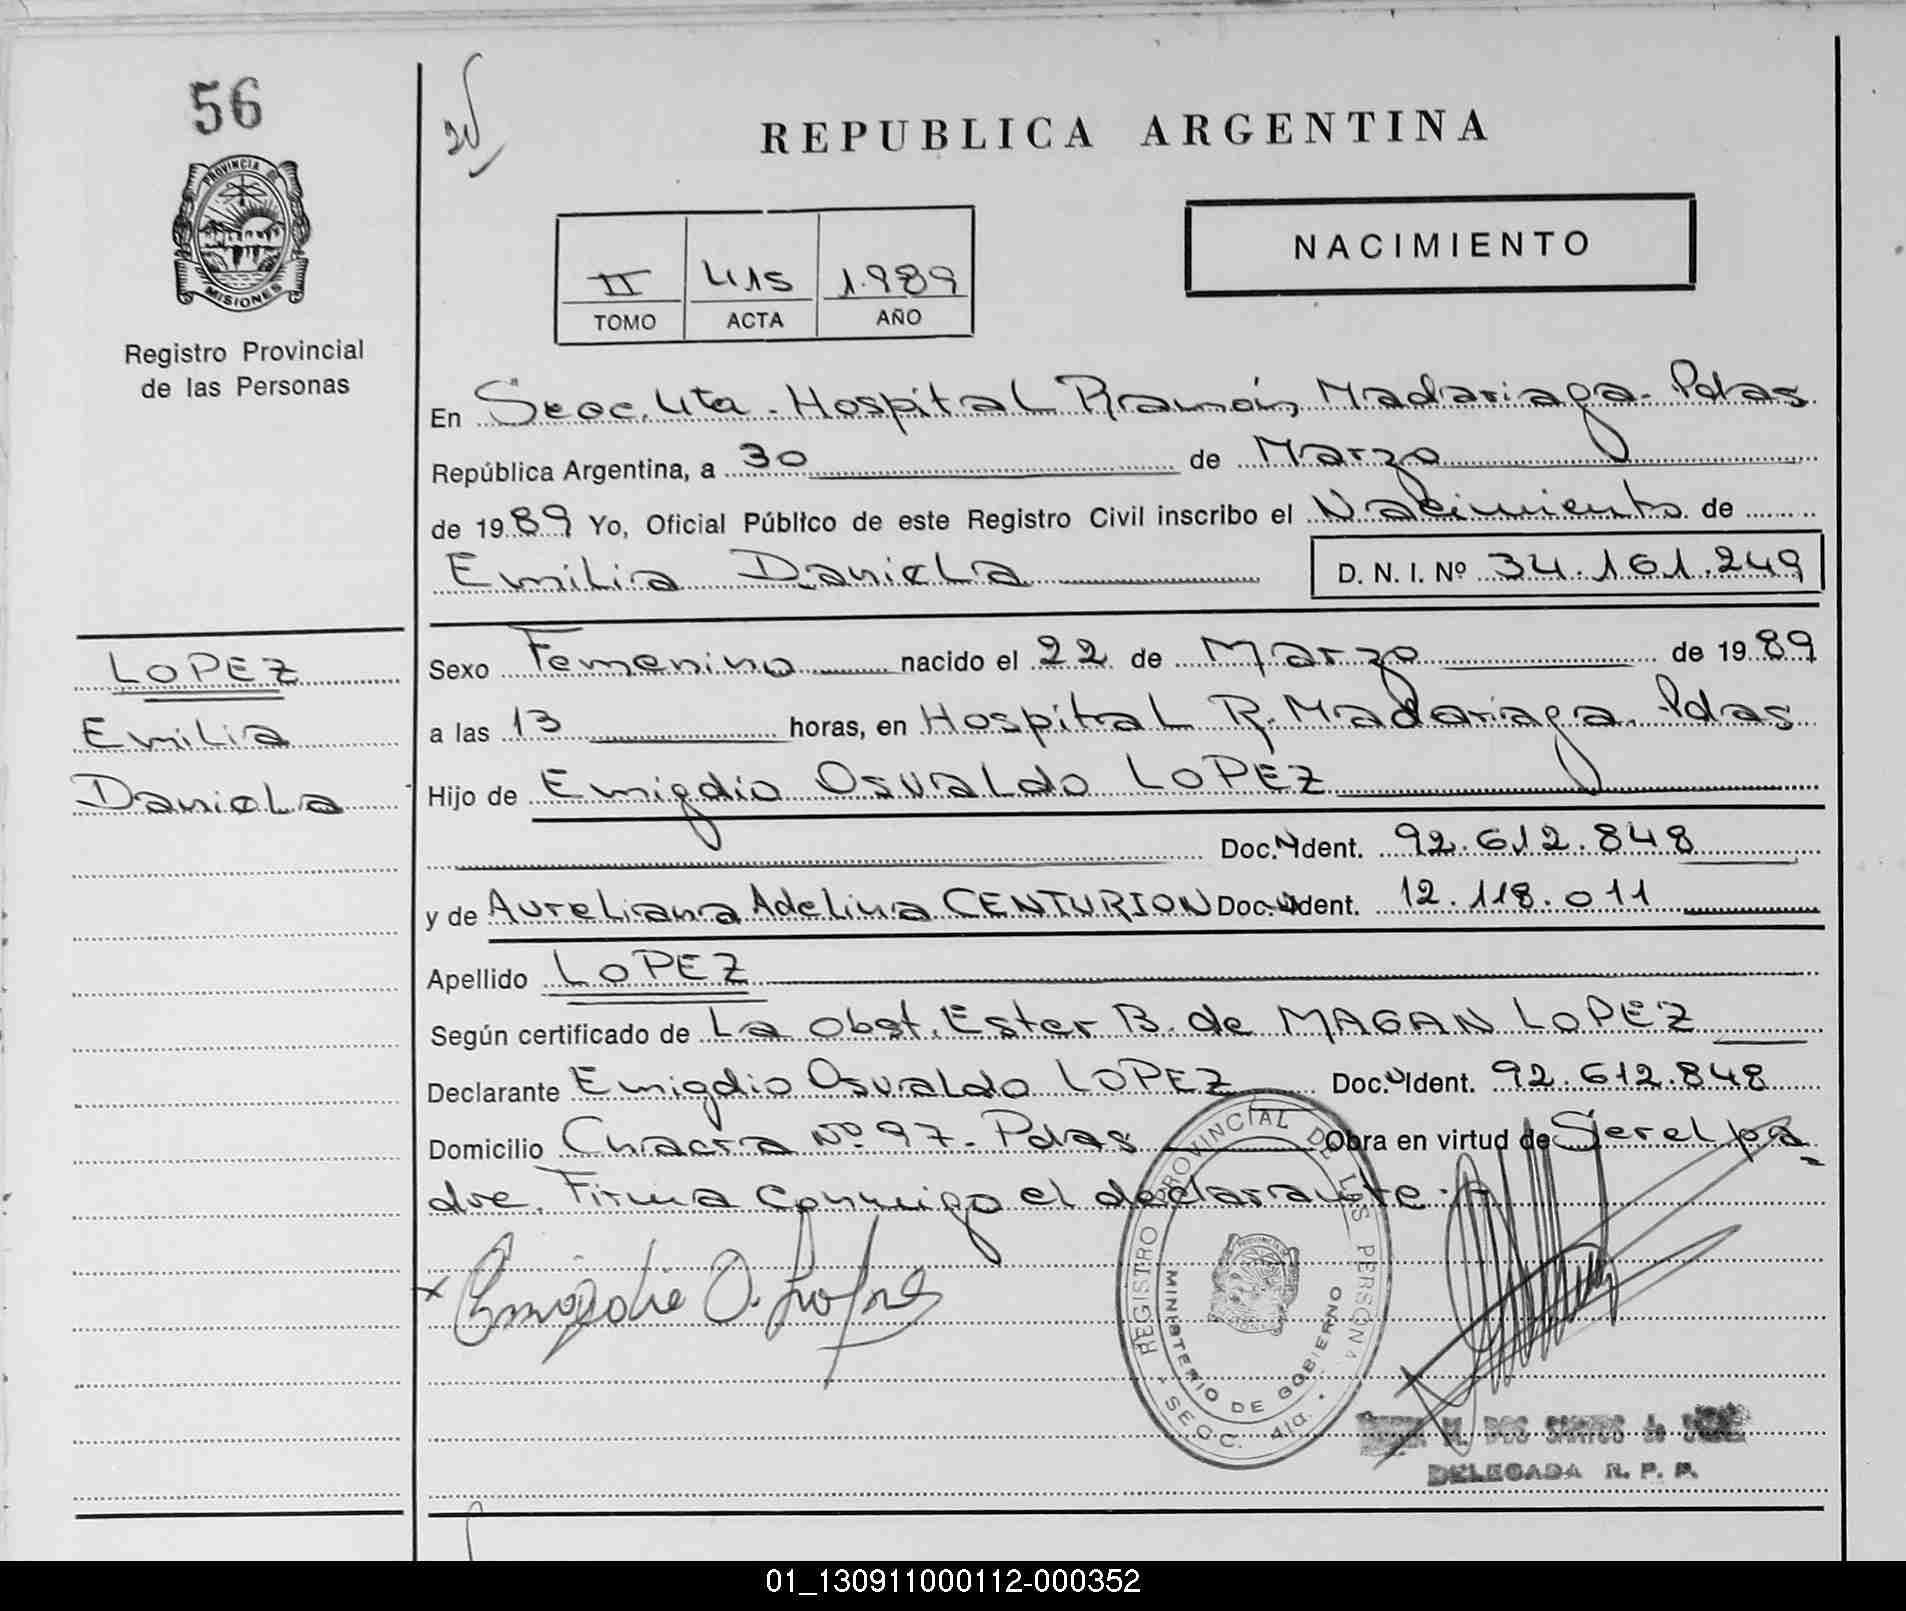 56
PROVINCIA DE
MISIONES
Registro Provincial
de las Personas
REPUBLICA ARGENTINA
NACIMIENTO
II 415 1.989
TOMO ACTA AÑO
En Secc. 4ta. Hospital Ramón Madariaga. Pdas
República Argentina, a 30 de Marzo
de 1989 Yo, Oficial Público de este Registro Civil inscribo el Nacimiento de
Emilia Daniela D. N. I. Nº 34.161.249
LOPEZ
Emilia
Daniela
Sexo Femenino nacido el 22 de Marzo de 1989
a las 13 horas, en Hospital R. Madariaga. Pdas
Hijo de Emigdio Osvaldo LOPEZ
Doc. Ident. 92.612.848
y de Aureliana Adelina CENTURION Doc. Ident. 12.118.011
Apellido LOPEZ
Según certificado de La Obst. Ester B. de MAGAN LOPEZ
Declarante Emigdio Osvaldo LOPEZ Doc. Ident. 92.612.848
Domicilio Chacra Nº 97. Pdas Obra en virtud de Ser el pa
dre. Firma conmigo el declarante.
x Emigdio O. Lopez
REGISTRO PROVINCIAL DE LAS PERSONAS
MINISTERIO DE GOBIERNO
SECC. 4ta.
M. DOS SANTOS de
DELEGADA R. P. P.
01_130911000112-000352